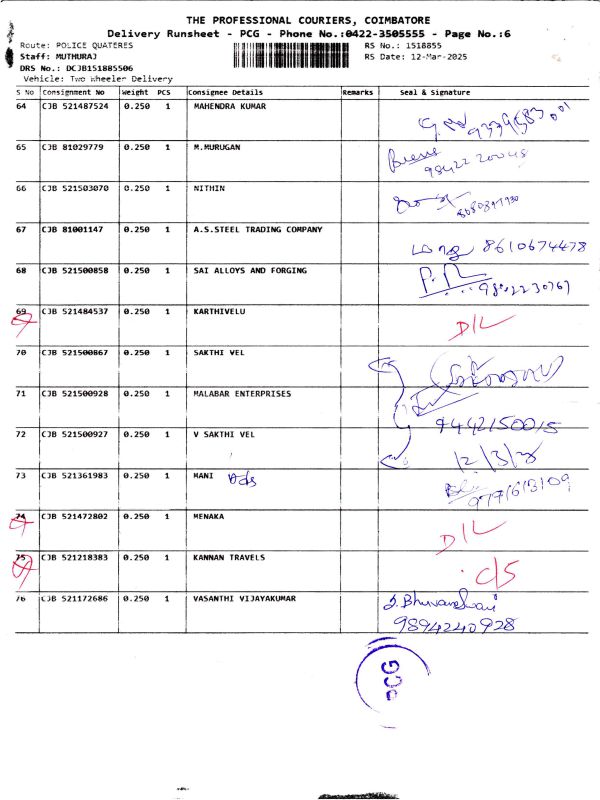 THE PROFESSIONAL COURIERS, COIMBATORE
Delivery Runsheet - PCG - Phone No.:0422-3505555 - Page No.:6
Route: POLICE QUATERES RS No.: 1518855
Staff: MUTHURAJ RS Date: 12-Mar-2025
DRS No.: DCJB151885506
Vehicle: Two Wheeler Delivery
S No Consignment No Weight PCS Consignee Details Remarks Seal & Signature
64 CJB 521487524 0.250 1 MAHENDRA KUMAR
65 CJB 81029779 0.250 1 M.MURUGAN
66 CJB 521503070 0.250 1 NITHIN
67 CJB 81001147 0.250 1 A.S.STEEL TRADING COMPANY
8610674478
68 CJB 521500858 0.250 1 SAI ALLOYS AND FORGING
69 CJB 521484537 0.250 1 KARTHIVELU D/L
70 CJB 521500867 0.250 1 SAKTHI VEL
71 CJB 521500928 0.250 1 MALABAR ENTERPRISES
9442150015
72 CJB 521500927 0.250 1 V SAKTHI VEL
73 CJB 521361983 0.250 1 MANI
74 CJB 521472802 0.250 1 MENAKA D/L
75 CJB 521218383 0.250 1 KANNAN TRAVELS C/S
76 CJB 521172686 0.250 1 VASANTHI VIJAYAKUMAR
9894240928
PCG